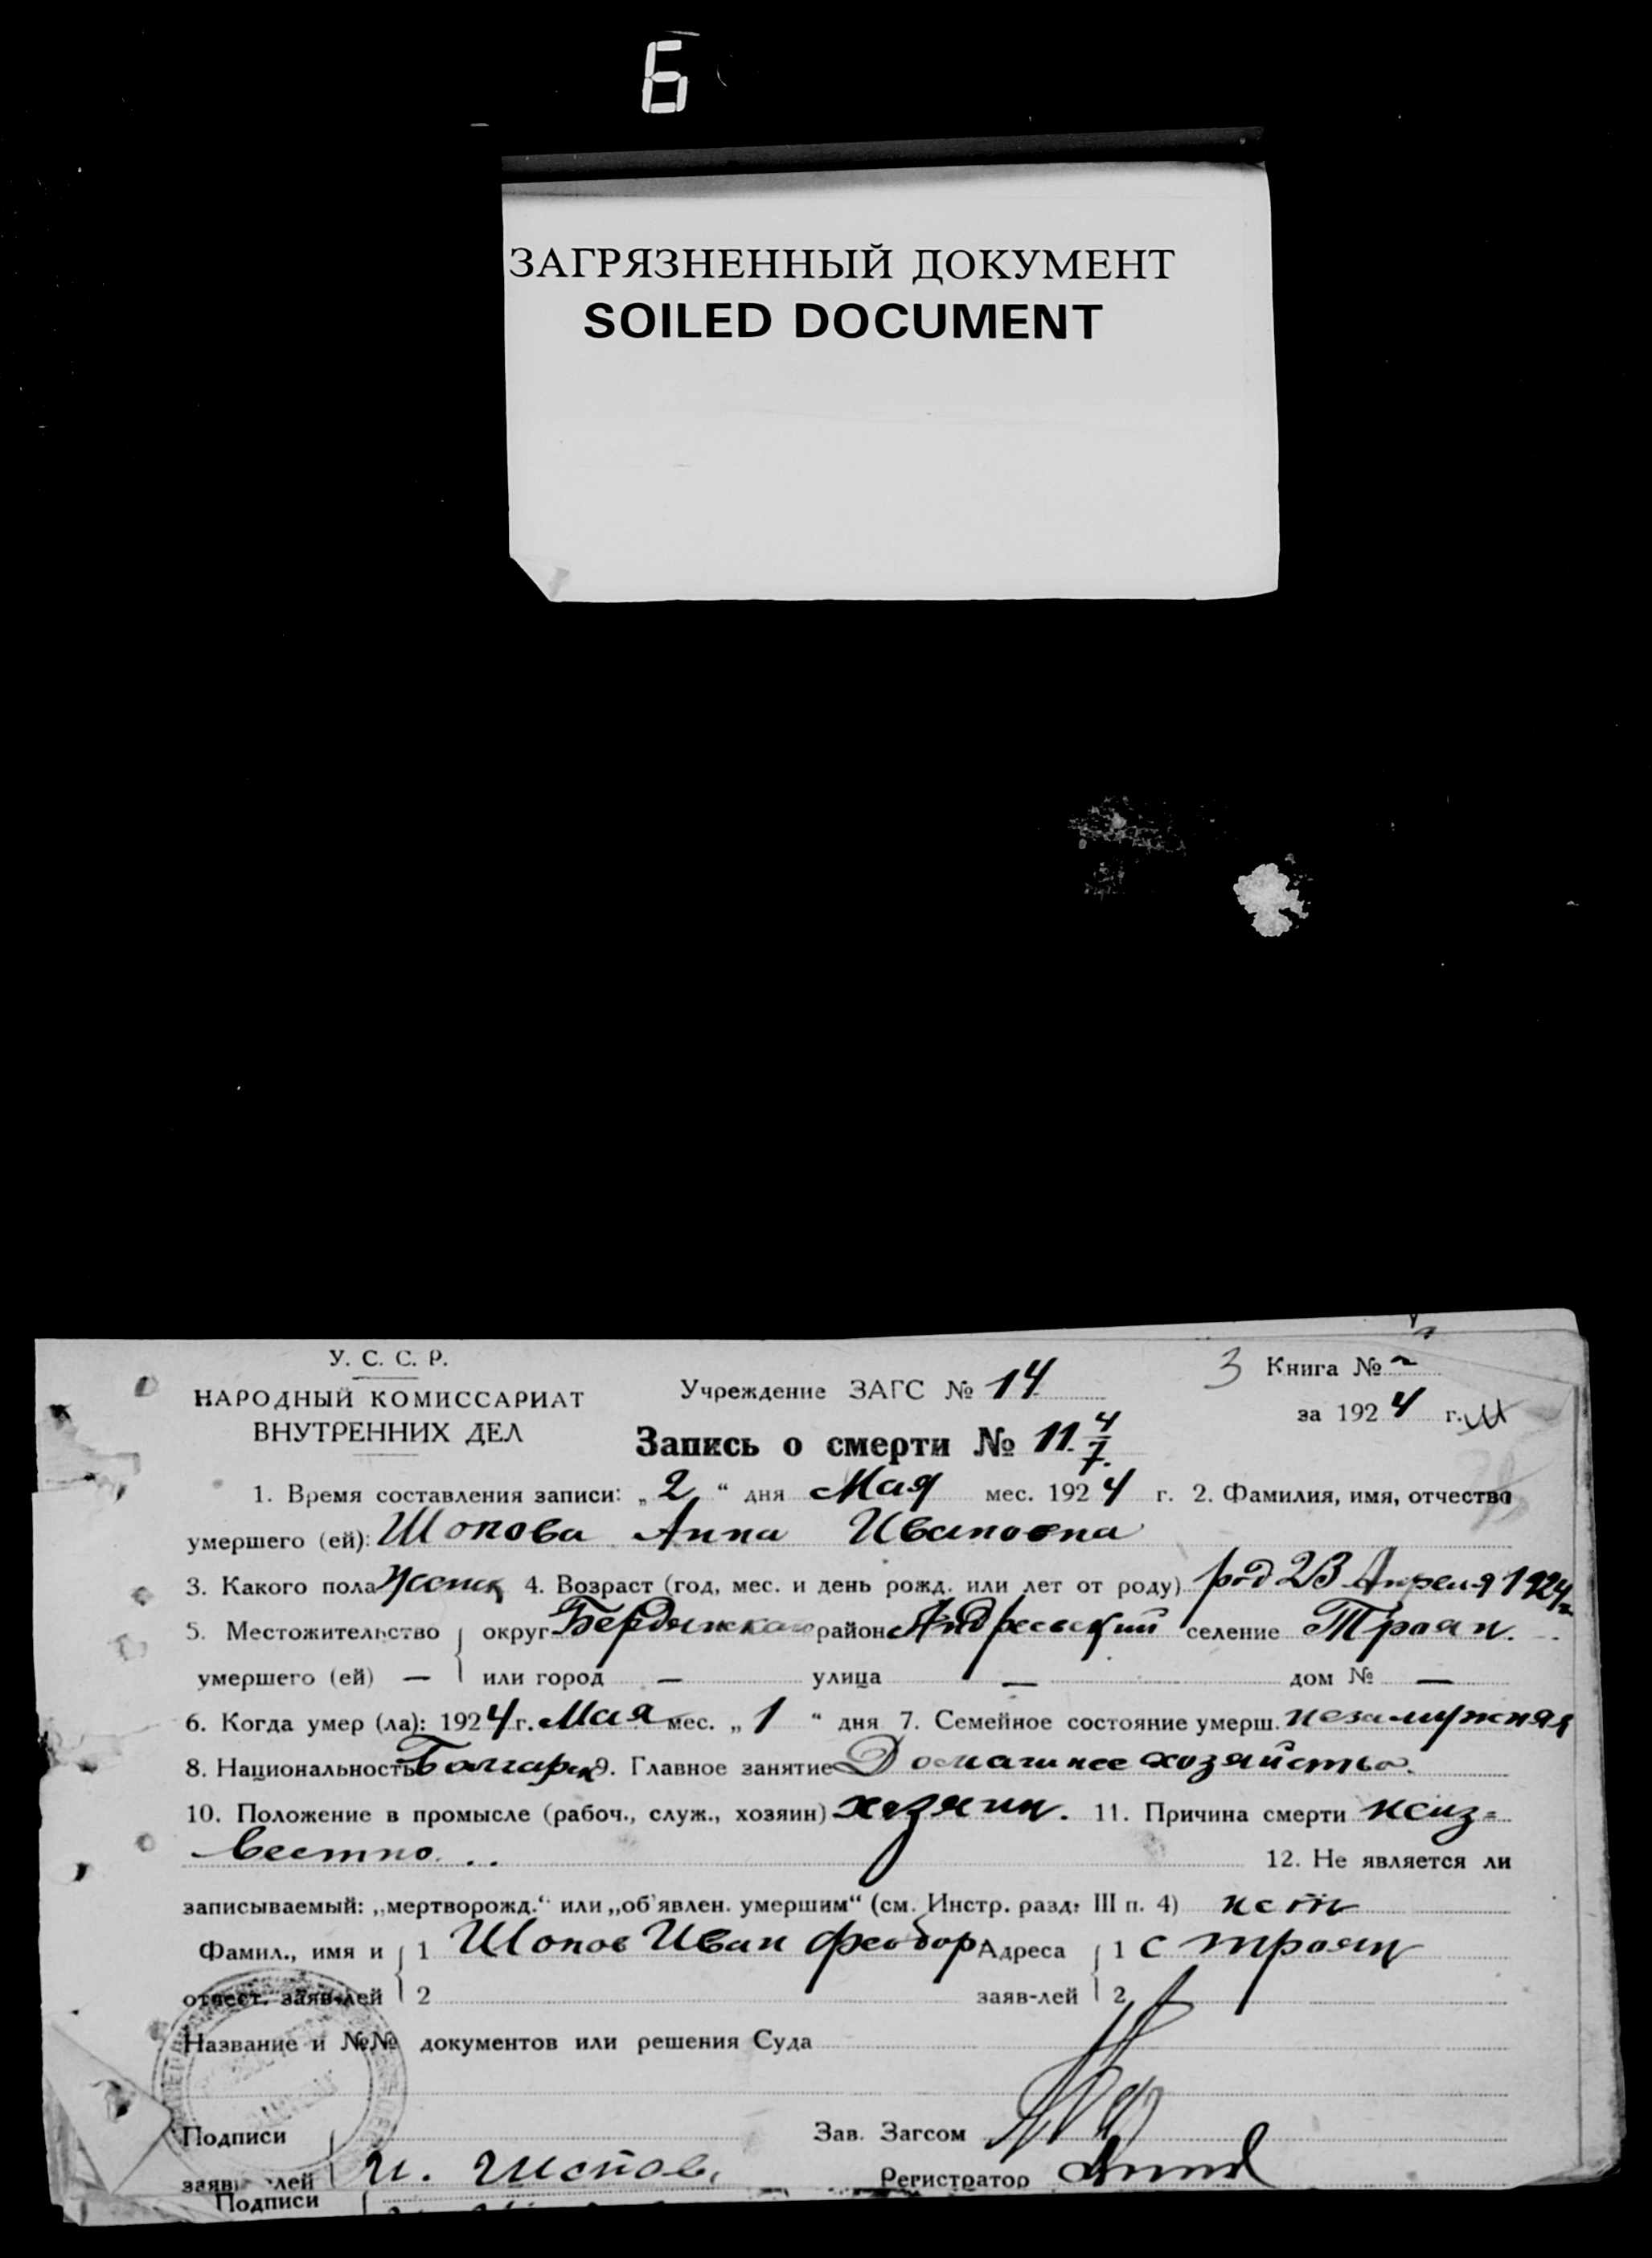 6
ЗАГРЯЗНЕННЫЙ ДОКУМЕНТ
SOILED DOCUMENT
У. С. С. Р.
НАРОДНЫЙ КОМИССАРИАТ
ВНУТРЕННИХ ДЕЛ
Учреждение ЗАГС № 14
3 Книга №
за 1924 г.
Запись о смерти № 11. 4/7.
1. Время составления записи: „2“ дня Мая мес. 1924 г. 2. Фамилия, имя, отчество
умершего (ей): Шопова Анна Ивановна
3. Какого пола женск 4. Возраст (год, мес. и день рожд. или лет от роду) род 23 Апреля 1924 г.
5. Местожительство округ Бердянского район Андреевский селение Троян.
умершего (ей) — или город — улица — дом № —
6. Когда умер (ла): 1924 г. Мая мес. „1“ дня 7. Семейное состояние умерш. незамужняя
8. Национальность Болгарка 9. Главное занятие Домашнее хозяйство.
10. Положение в промысле (рабоч., служ., хозяин) хозяин. 11. Причина смерти неиз=
вестно...
12. Не является ли
записываемый: „мертворожд.“ или „об'явлен. умершим“ (см. Инстр. разд. III п. 4) нет
Фамил., имя и 1 Шопов Иван Феодор Адреса 1 с Троян
отчест. заяв-лей 2 заяв-лей 2
Название и №№ документов или решения Суда
Подписи Зав. Загсом
заяв-лей И. Шопов, Регистратор
Подписи